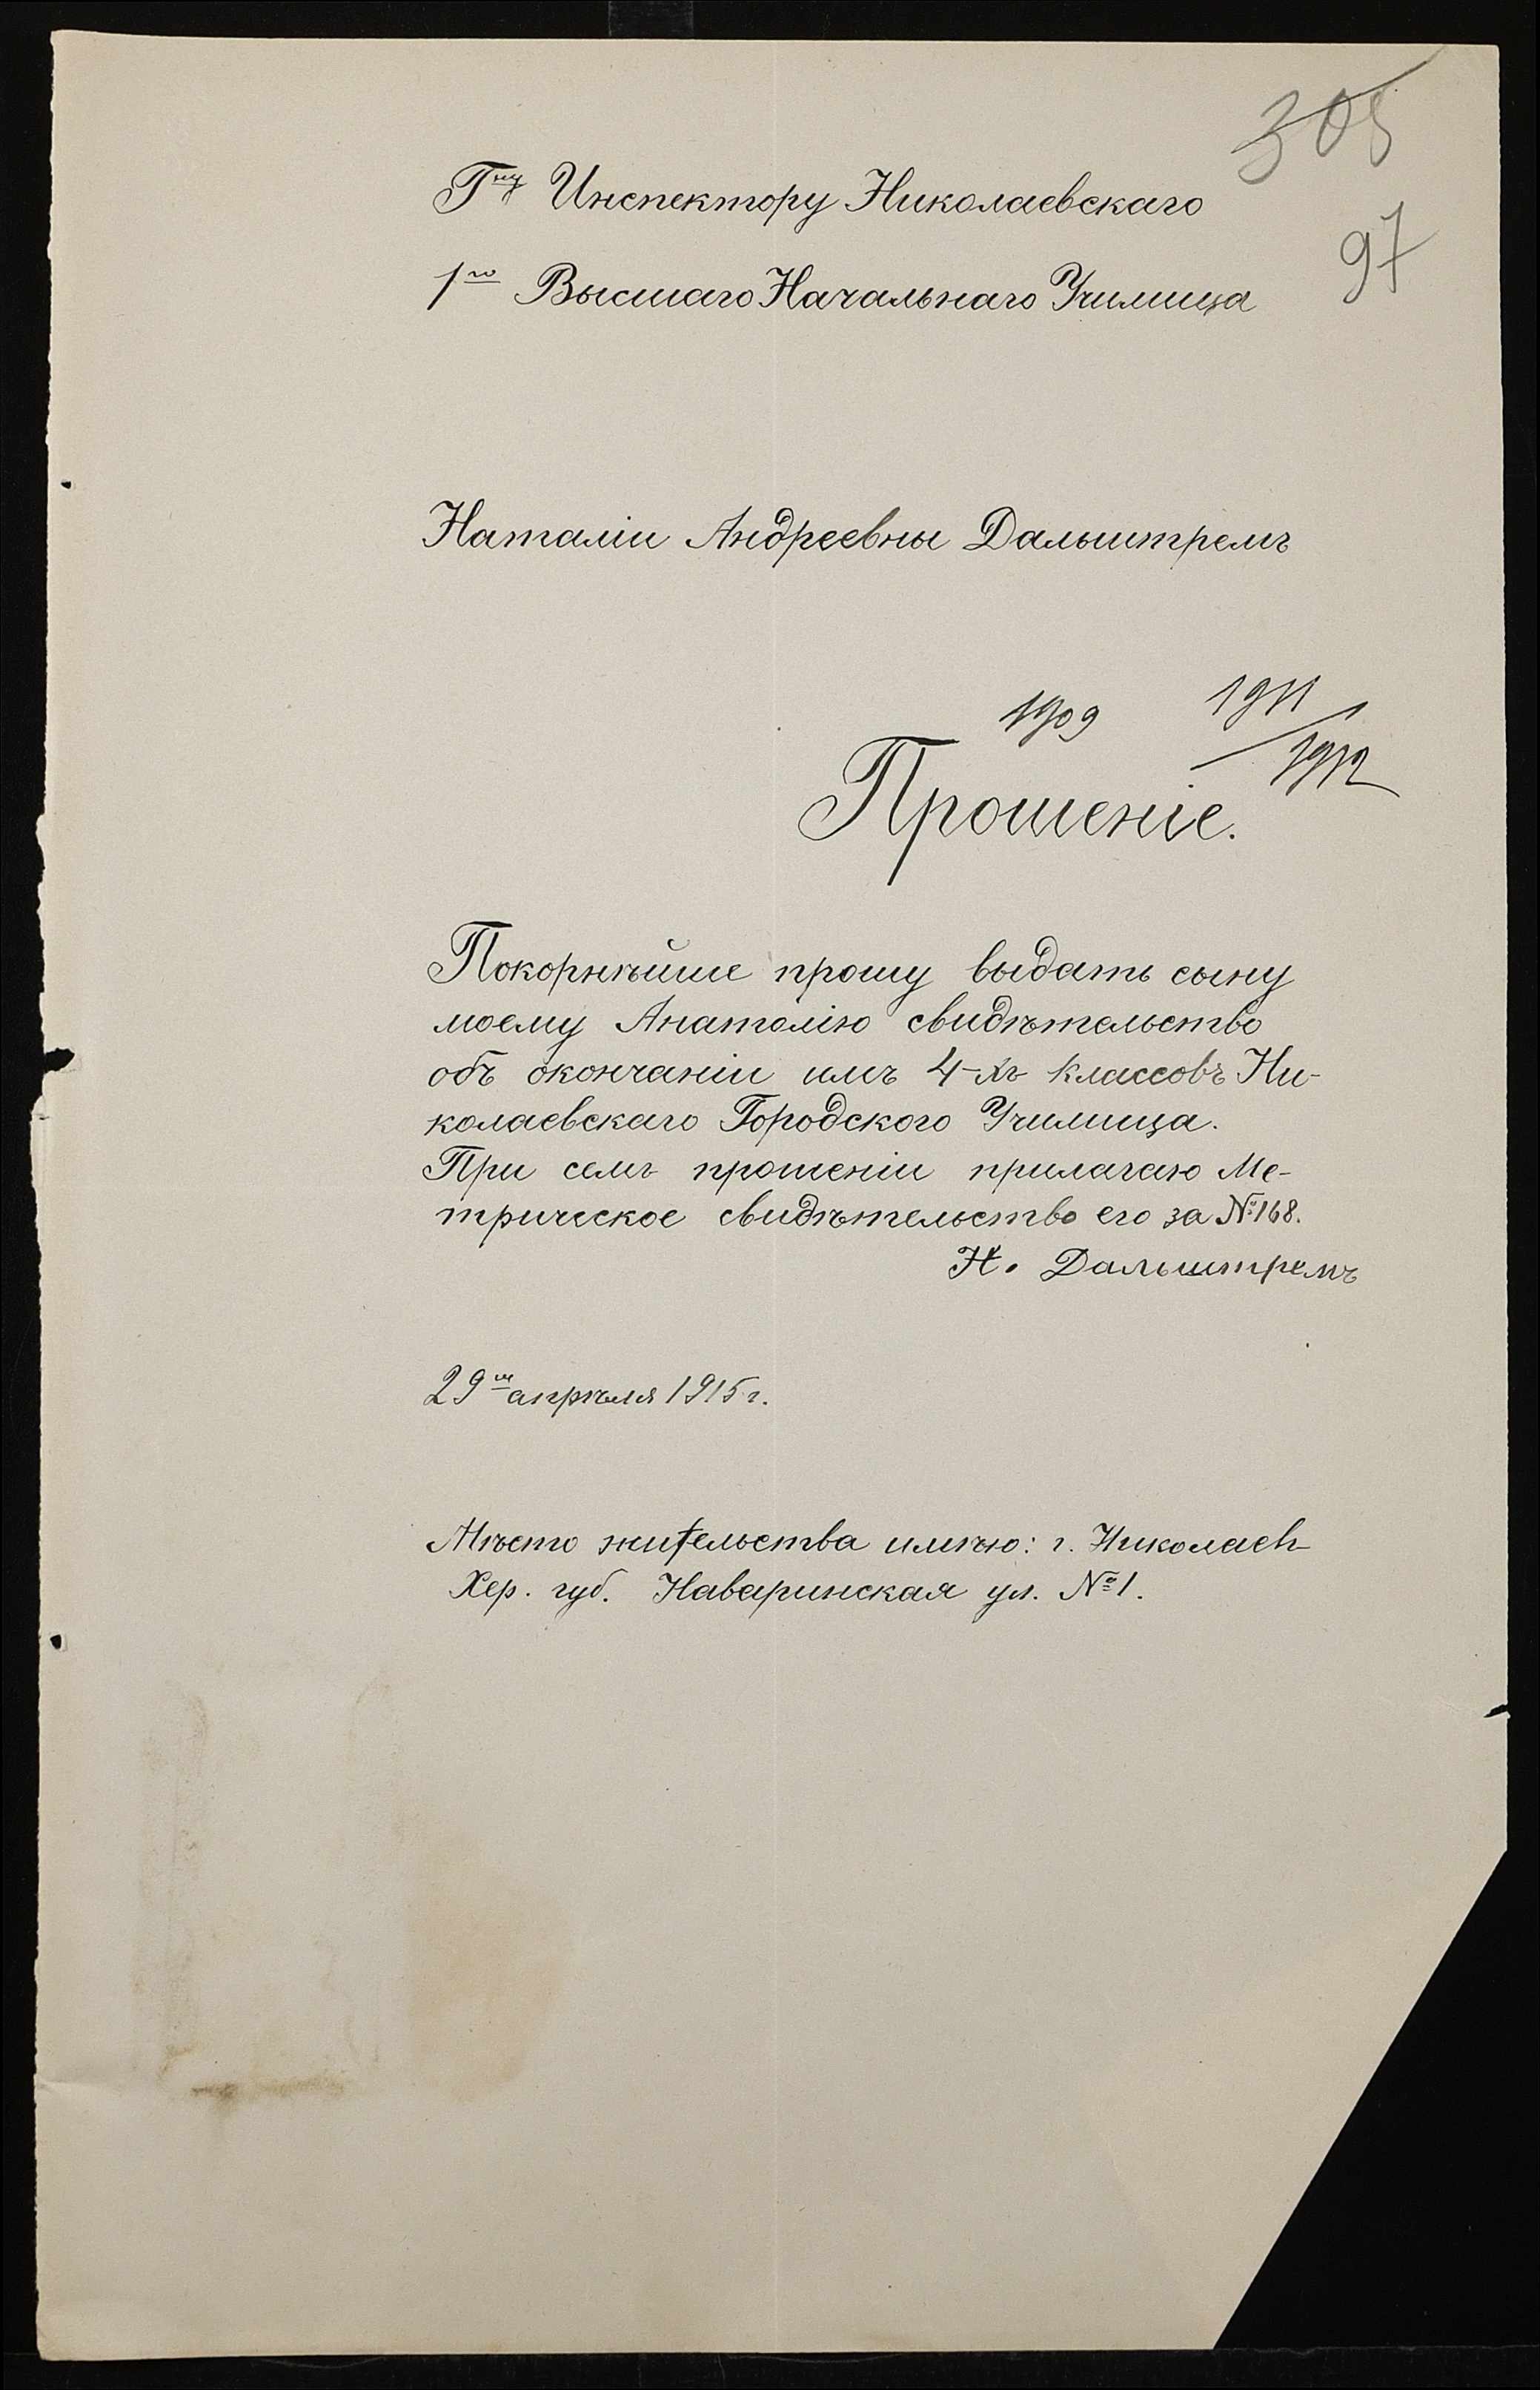 305
Гну Инспектору Николаевскаго
97
1го Высшаго Начальнаго Училища
Наталіи Андреевны Дальштремъ
1909 1911/1912
Прошеніе.
Покорнѣйше прошу выдать сыну
моему Анатолію свидѣтельство
объ окончаніи имъ 4-хъ классовъ Ни-
колаевскаго Городского Училища.
При семъ прошеніи прилагаю Ме-
трическое свидѣтельство его за №168.
Н. Дальштремъ
29го апрѣля 1915 г.
Мѣсто жительства имѣю: г. Николаевъ
Хер. губ. Наваринская ул. №1.